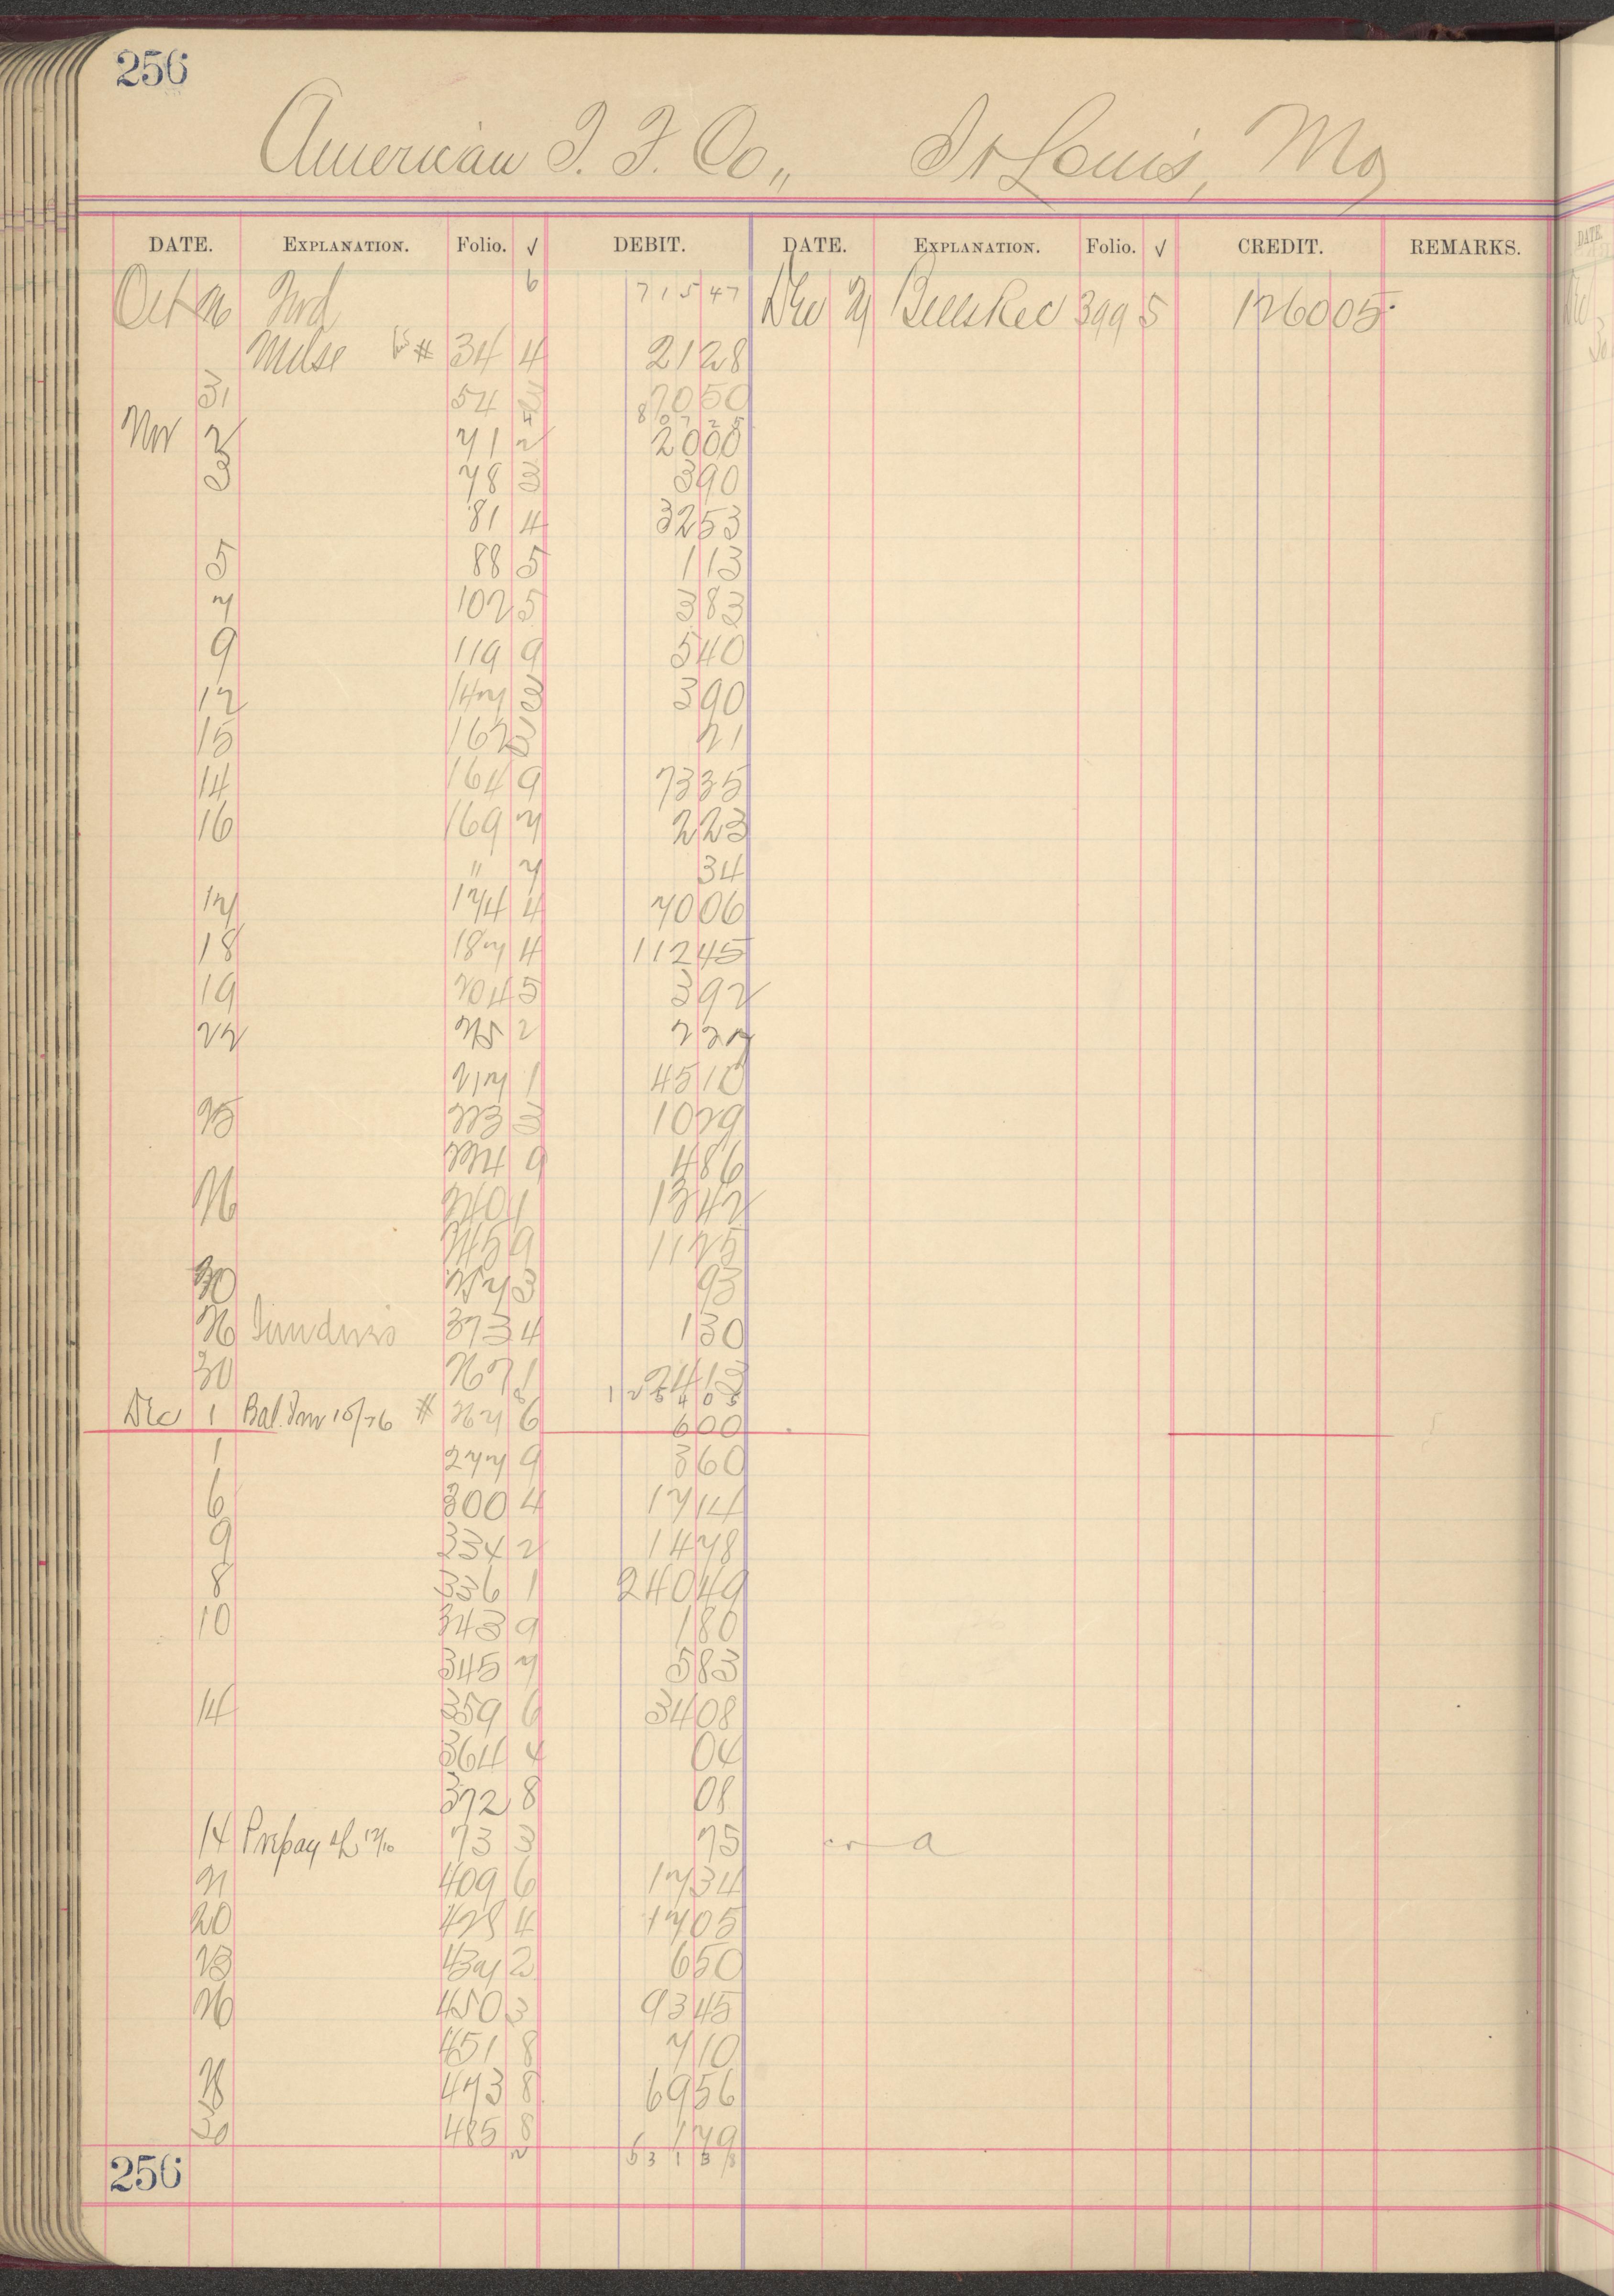 256
American T. F. Co., St Louis, Mo
DATE. EXPLANATION. Folio. √ DEBIT. DATE. EXPLANATION. Folio. √ CREDIT. REMARKS.
Oct 26 Fwd 6 715 47 Dec 21 Bills Rec 399 5 1260 05
Mdse # 34 4 21 28
31 54 70 50
4 807 25
Nov 2 71 2 20 00
3 78 3 3 90
81 4 32 53
5 88 5 1 13
7 102 5 3 83
9 119 9 5 40
12 147 3 3 90
15 162 3 21
14 164 9 73 35
16 169 7 2 23
" 7 34
17 174 4 70 06
18 187 4 112 45
19 204 5 3 92
22 215 2 2 27
217 1 45 10
25 223 3 10 29
224 9 4 86
26 240 1 13 42
245 9 11 25
30 257 3 93
26 Sundries 373 4 1 30
30 267 1 24 13
8 1254 05
Dec 1 Bal. Inv 10/26 # 267 6 6 00
1 277 9 3 60
6 300 4 17 14
9 334 2 14 78
8 336 1 240 49
10 343 9 1 80
345 7 5 83
14 359 6 34 08
364 4 04
372 8 08
14 Prepay 12/10 73 3 75 a
21 409 6 17 34
20 428 4 17 05
23 437 2 6 50
26 450 3 93 45
451 8 7 10
28 473 8 69 56
30 485 8 1 79
2
256